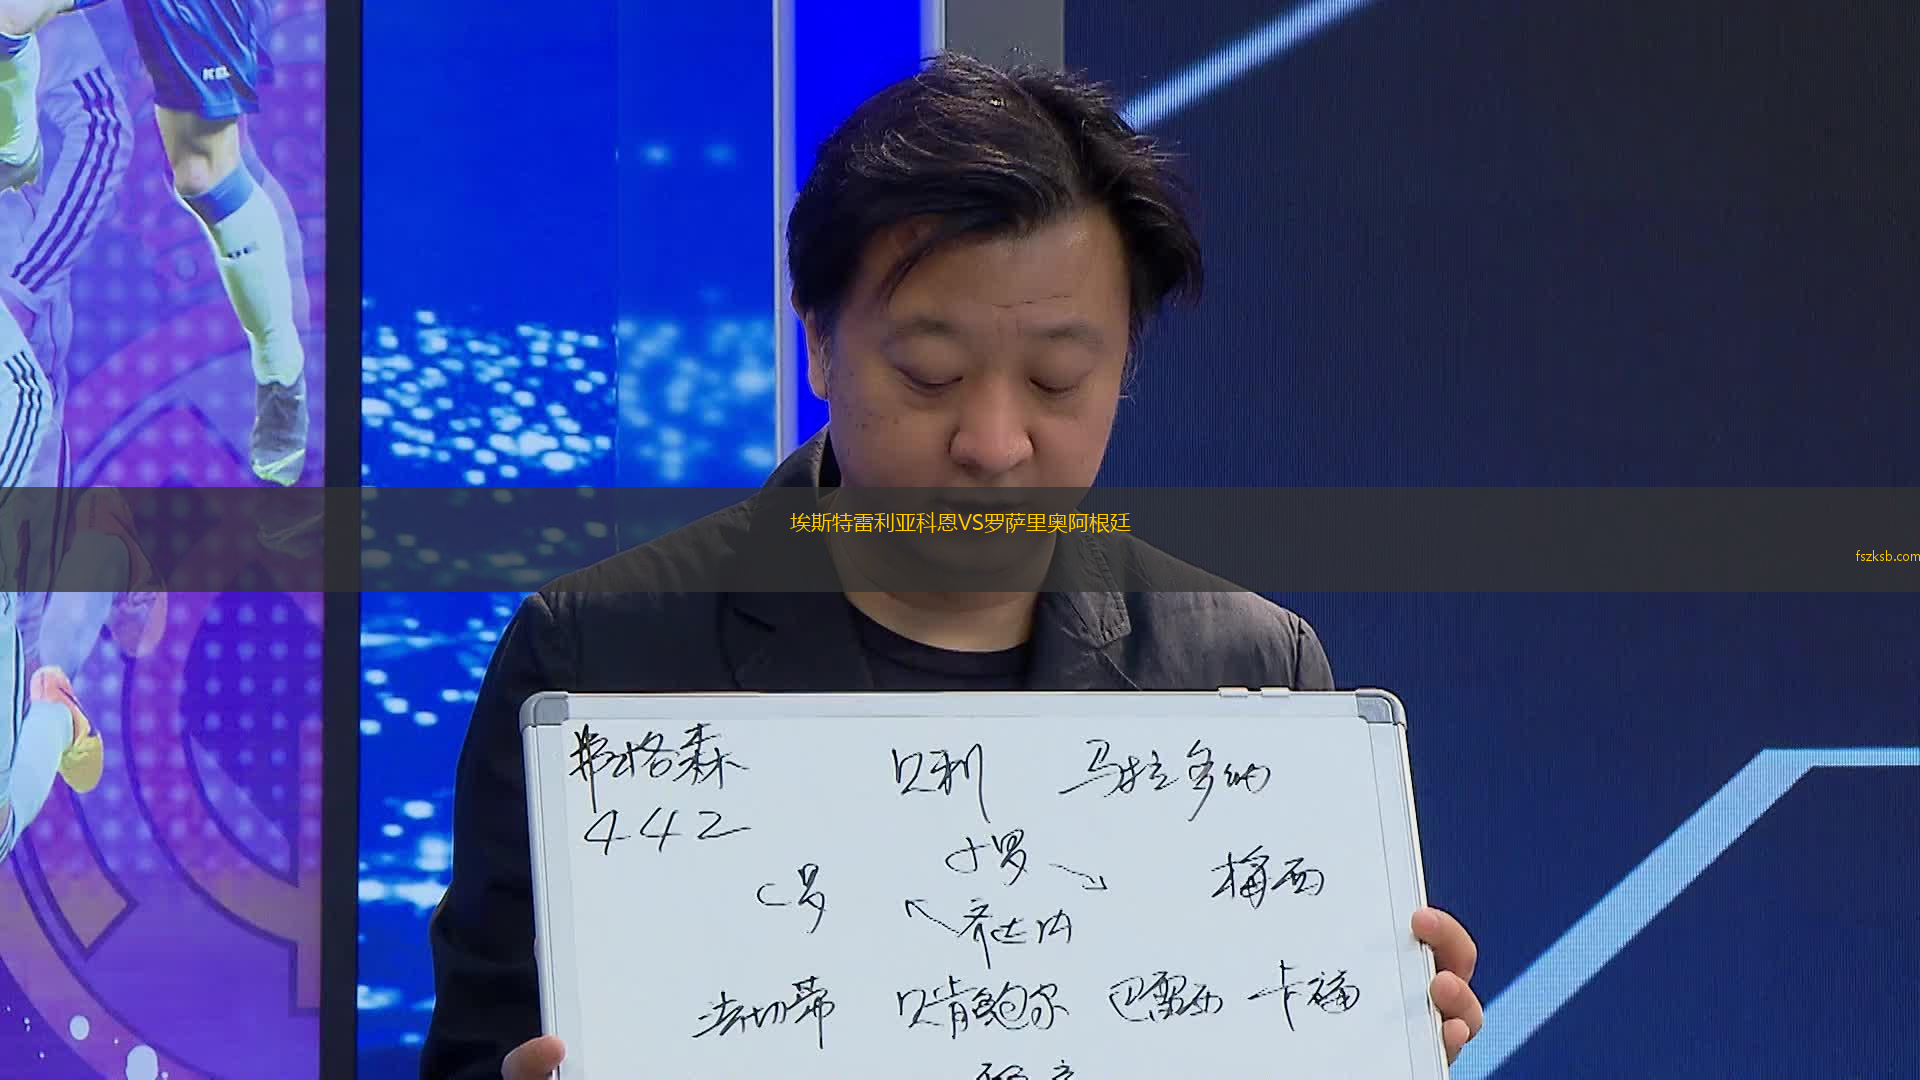 KEL
埃斯特雷利亚科恩VS罗萨里奥阿根廷
fszksb.com
弗格森 贝利 马拉多纳
442
小罗
C罗 梅西
齐达内
法切蒂 贝肯鲍尔 巴雷西 卡福